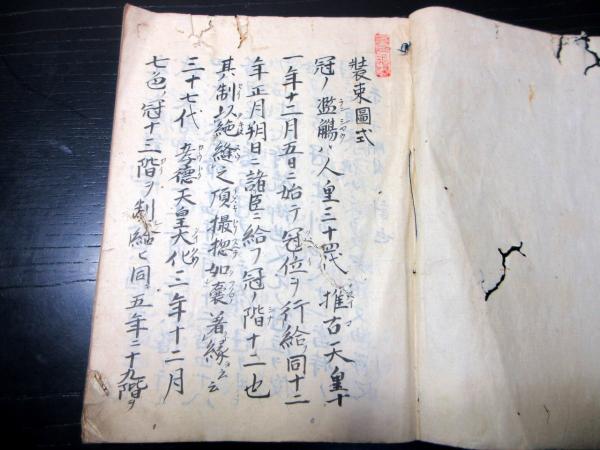 装束圖式
冠ノ濫觴ハ人皇三十四代 推古天皇十
一年十二月五日ニ始テ冠位ヲ行給同十二
年正月朔日ニ諸臣ニ給フ冠ノ階十二也
其制以絁縫之頂撮揔如囊著縁云云
三十七代 孝徳天皇大化三年十二月
七色ノ冠十三階ヲ制給ヒ同五年ニ十九階ヲ